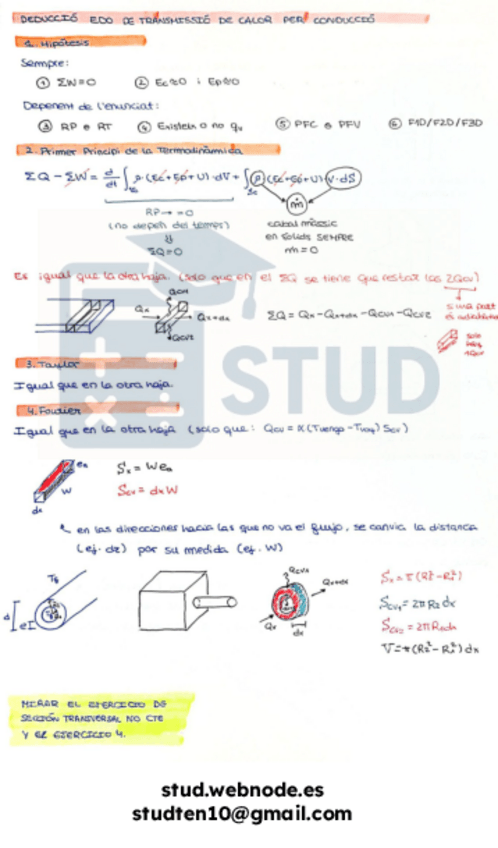 DEDUCCIÓ EDO DE TRANSMISSIÓ DE CALOR PER CONDUCCIÓ
1. Hipòtesis
Sempre:
① ΣW=0 ② Ec≈0 i Ep≈0
Depenent de l'enunciat:
③ RP o RT ④ Existeix o no qv ⑤ PFC o PFV ⑥ F1D/F2D/F3D
2. Primer Principi de la Termodinàmica
ΣQ - ΣW = d/dt ∫ ρ·(Ec+Ep+U)·dV + ∫ ρ (Ec+Ep+U) V·dS
RP → =0
(no depèn del temps)
⇓
ΣQ=0
ṁ
cabal màssic
en sòlids SEMPRE
ṁ=0
Es igual que la otra hoja. (solo que en el ΣQ se tiene que restar las 2Qcv)
Qx Qx+dx
Qcv2
ΣQ = Qx - Qx+dx - Qcv1 - Qcv2
si una part
és adiabàtica
solo
hay
1Qcv
3. Taylor
Igual que en la otra hoja.
4. Fourier
Igual que en la otra hoja (solo que: Qcv = α(Ttengo - Tvoy) Scv)
ea
W
dx
Sx = Wea
Scv = dxW
en las direcciones hacia las que no va el flujo, se canvia la distancia
(ej. dz) por su medida (ej. W)
Qcv1
Qx+dx
Qx
dx
Sx = π(R2²-R1²)
Scv1 = 2πR2dx
Scv2 = 2πR1dx
V = π(R2²-R1²)dx
MIRAR EL EJERCICIO DE
SECCIÓN TRANSVERSAL NO CTE
Y EL EJERCICIO 4.
STUD
stud.webnode.es
studten10@gmail.com